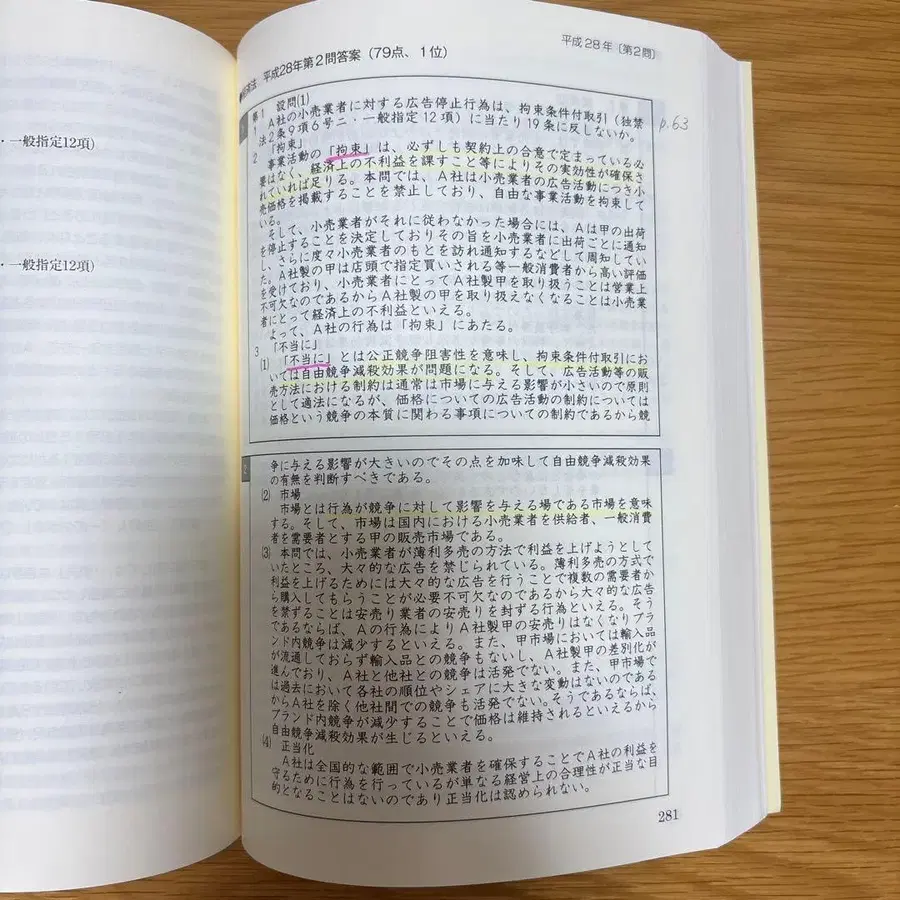 ・一般指定12項)
・一般指定12項)
平成28年〔第2問〕
経済法 平成28年第2問答案(79点、1位)
p.63
1
第1 設問(1)
1 A社の小売業者に対する広告停止行為は、拘束条件付取引(独禁
法2条9項6号ニ・一般指定12項)に当たり19条に反しないか。
2 「拘束」
事業活動の「拘束」は、必ずしも契約上の合意で定まっている必
要はなく、経済上の不利益を課すこと等によりその実効性が確保さ
れていれば足りる。本問では、A社は小売業者の広告活動につき小
売価格を掲載することを禁止しており、自由な事業活動を拘束して
いる。
そして、小売業者がそれに従わなかった場合には、Aは甲の出荷
を停止することを決定しておりその旨を小売業者に出荷ごとに通知
し、さらに度々小売業者のもとを訪れ通知するなどして周知してい
た。A社製の甲は店頭で指定買いされる等一般消費者から高い評価
を受けており、小売業者にとってA社製甲を取り扱うことは営業上
不可欠なのであるからA社製の甲を取り扱えなくなることは小売業
者にとって経済上の不利益といえる。
よって、A社の行為は「拘束」にあたる。
3 「不当に」
(1) 「不当に」とは公正競争阻害性を意味し、拘束条件付取引にお
いては自由競争減殺効果が問題になる。そして、広告活動等の販
売方法における制約は通常は市場に与える影響が小さいので原則
として適法になるが、価格についての広告活動の制約については
価格という競争の本質に関わる事項についての制約であるから競
2
争に与える影響が大きいのでその点を加味して自由競争減殺効果
の有無を判断すべきである。
(2) 市場
市場とは行為が競争に対して影響を与える場である市場を意味
する。そして、市場は国内における小売業者を供給者、一般消費
者を需要者とする甲の販売市場である。
(3) 本問では、小売業者が薄利多売の方法で利益を上げようとして
いたところ、大々的な広告を禁じられている。薄利多売の方式で
利益を上げるためには大々的な広告を行うことで複数の需要者か
ら購入してもらうことが必要不可欠なのであるから大々的な広告
を禁ずることは安売り業者の安売りを封ずる行為といえる。そう
であるならば、Aの行為によりA社製甲の安売りはなくなりブラ
ンド内競争は減少するといえる。また、甲市場においては輸入品
が流通しておらず輸入品との競争もないし、A社製甲の差別化が
進んでおり、A社と他社との競争は活発でない。また、甲市場で
は過去において各社の順位やシェアに大きな変動はないのである
からA社を除く他社間での競争も活発でない。そうであるならば、
ブランド内競争が減少することで価格は維持されるといえるから
自由競争減殺効果が生じるといえる。
(4) 正当化
A社は全国的な範囲で小売業者を確保することでA社の利益を
守るために行為を行っているが単なる経営上の合理性が正当な目
的となることはないのであり正当化は認められない。
281